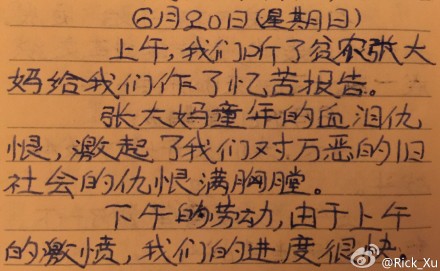 6月20日(星期日)
上午,我们听了贫农张大
妈给我们作了忆苦报告。
张大妈童年的血泪仇
恨,激起了我们对万恶的旧
社会的仇恨满胸膛。
下午的劳动,由于上午
的激愤,我们的进度很快
@Rick_Xu